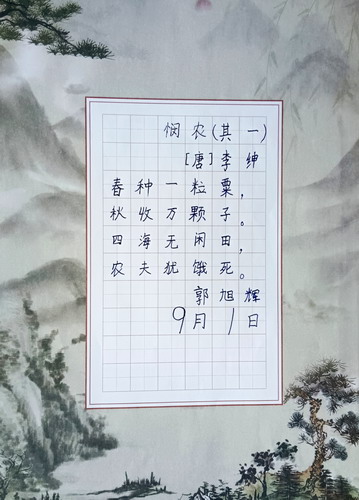 悯农(其一)
[唐]李绅
春种一粒粟,
秋收万颗子。
四海无闲田,
农夫犹饿死。
郭旭辉
9月1日